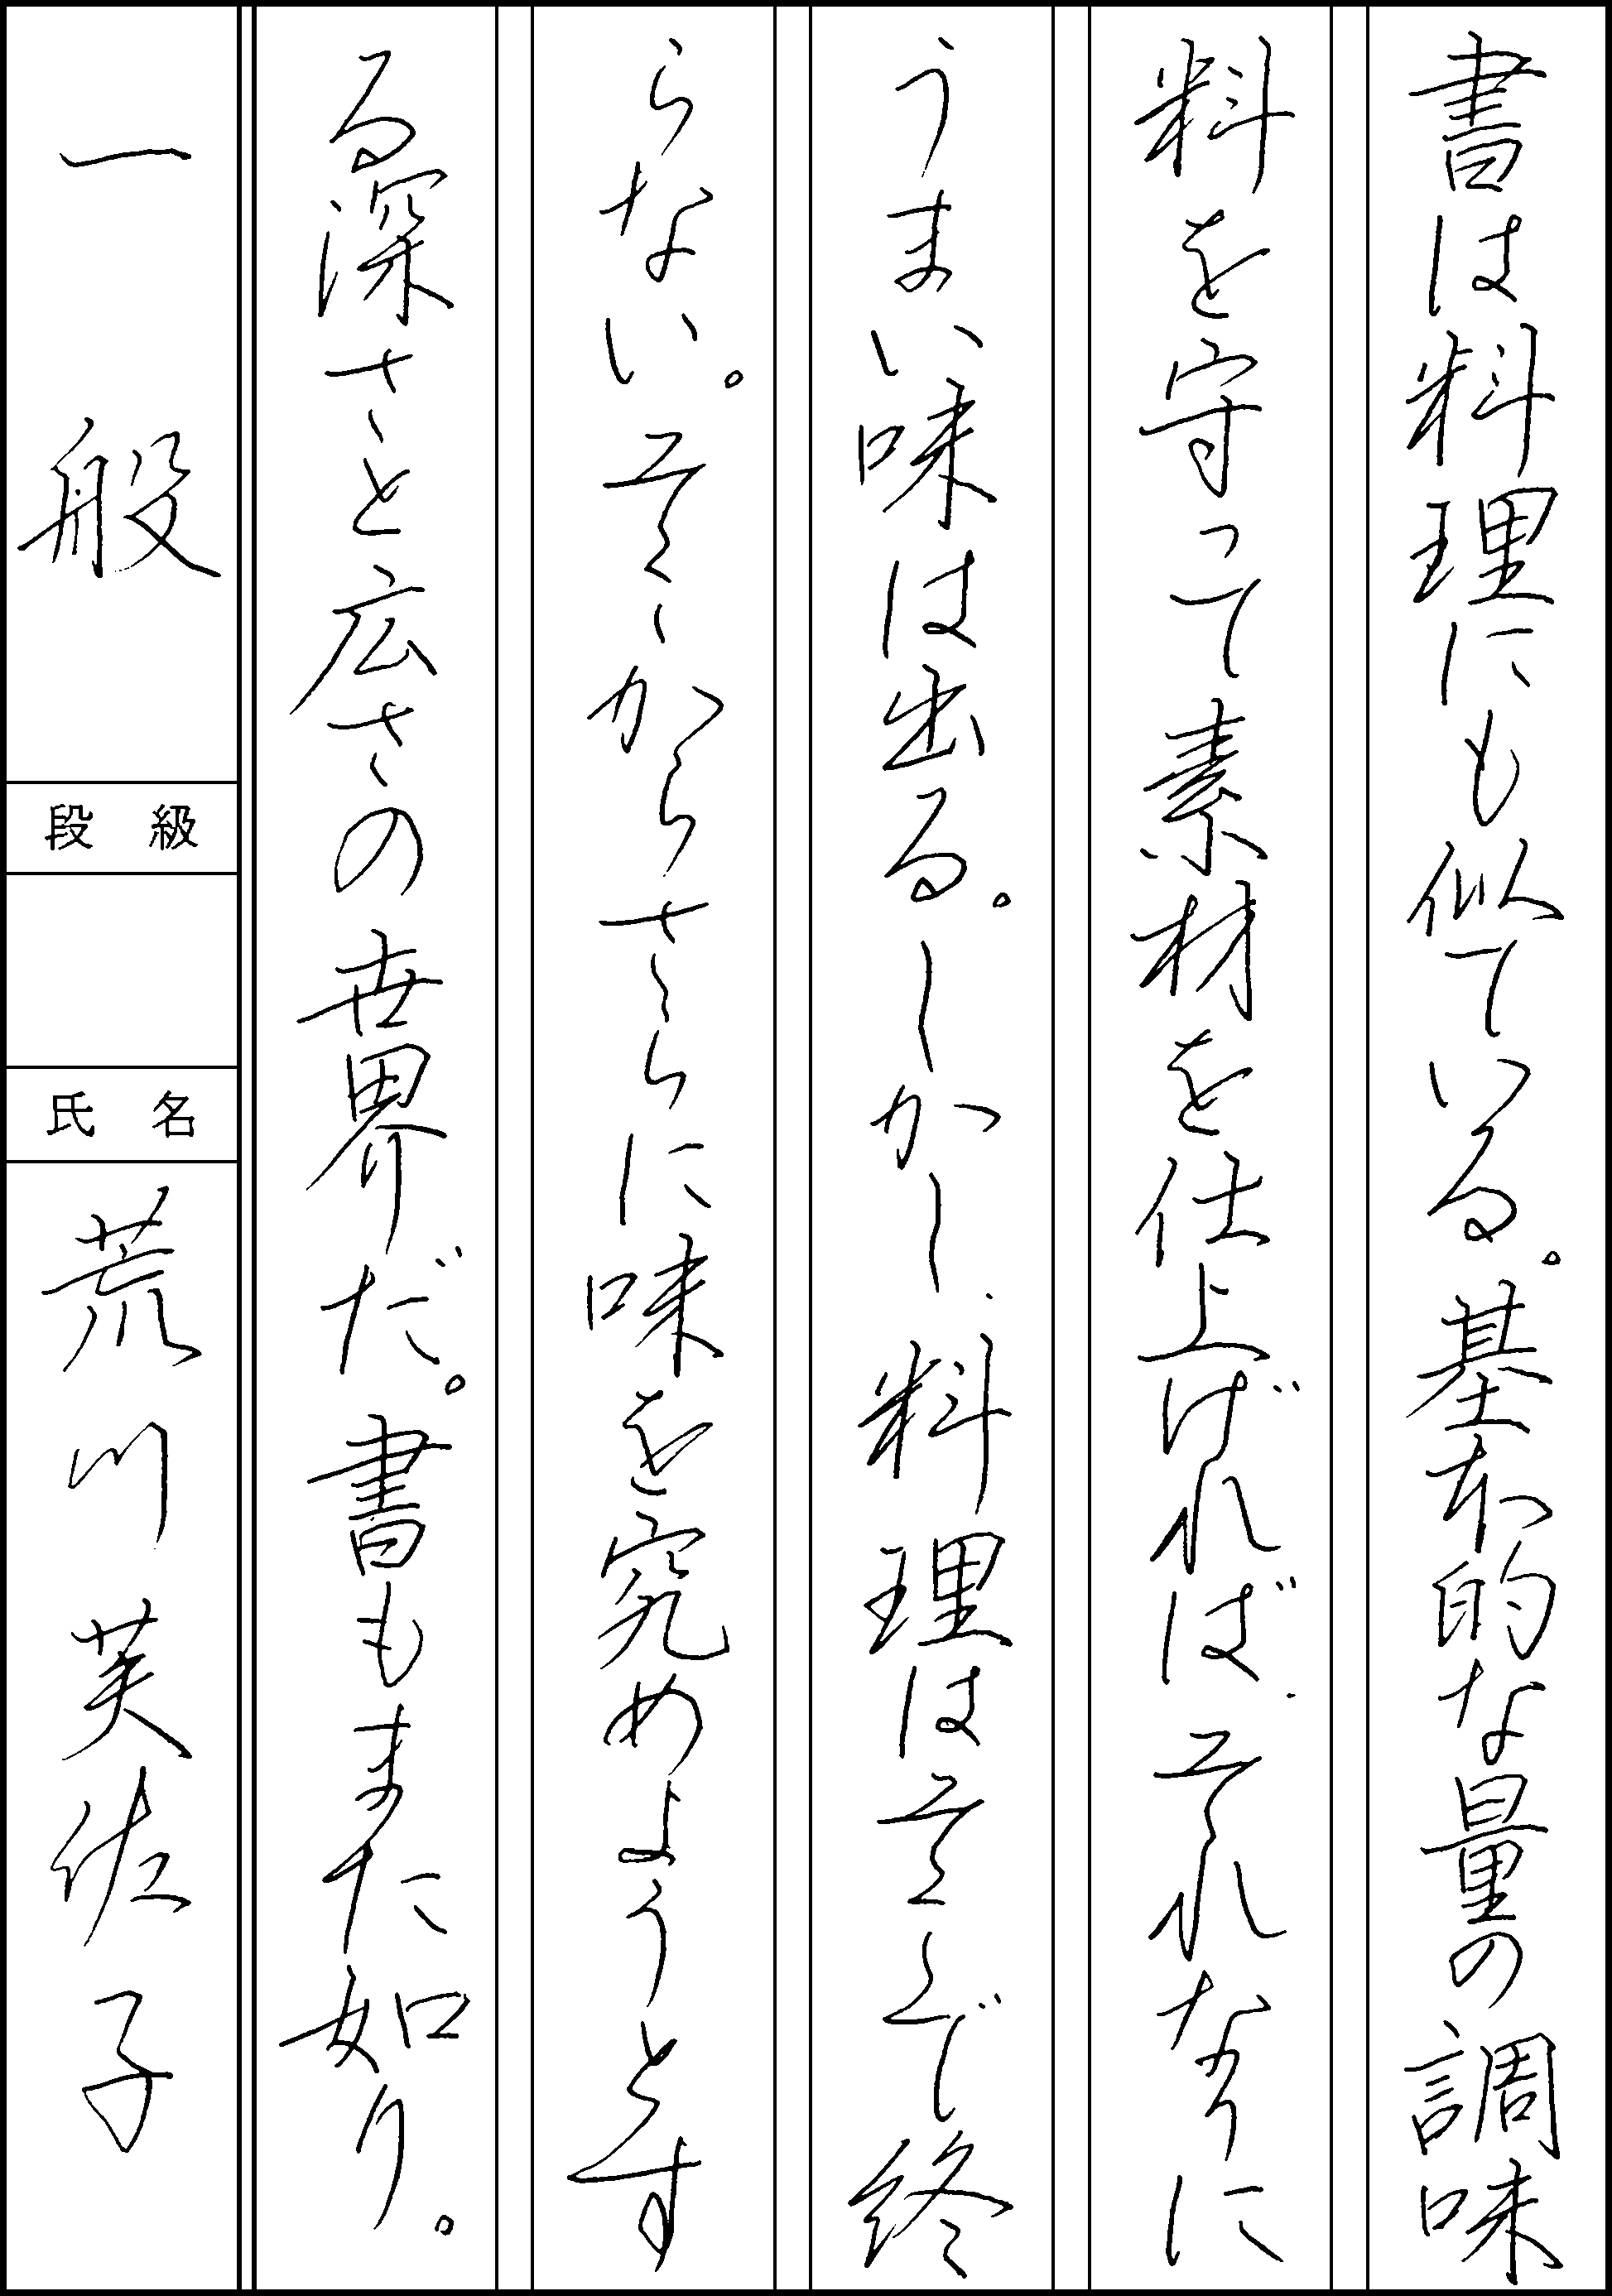 書は料理にも似ている。基本的な量の調味
料を守って素材を仕上げれば、それなりに
うまい味は出る。しかし、料理はそこで終
らない。そこからさらに味を究めようとす
る深さと広さの世界だ。書もまた如り。
一般
段級
氏名
荒川芙佐子